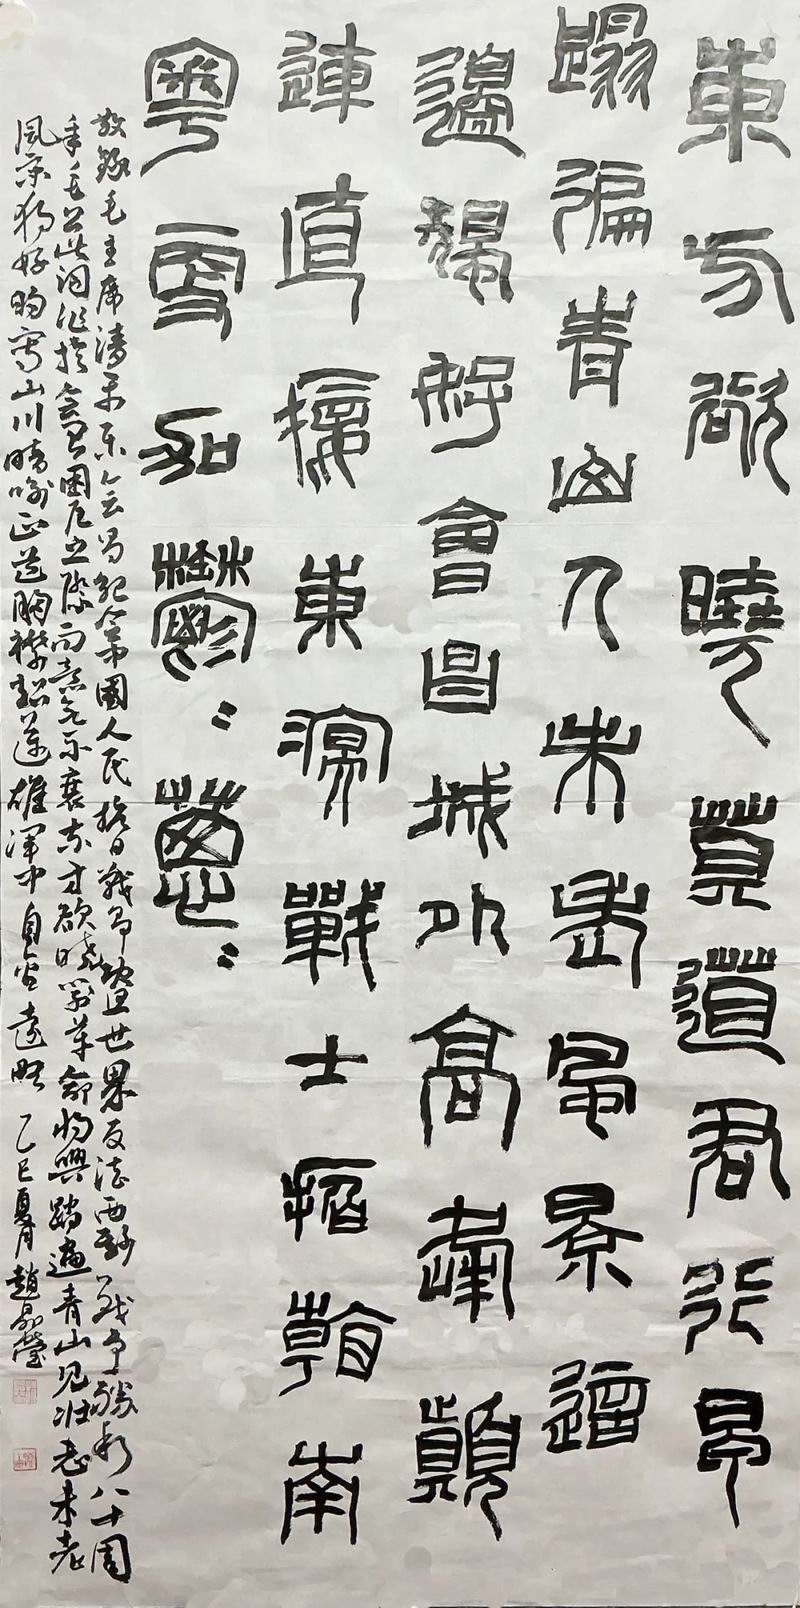 東方欲曉莫道君行早
蹋遍青山人未老風景這
邊獨好會昌城外高峰顛
連直接東溟戰士指看南
粵更加鬱〻葱〻
敬錄毛主席清平樂會昌紀念中國人民抗日戰爭暨世界反法西斯戰爭勝利八十周
年毛公此詞作於會昌困厄之際而意氣不衰東方欲曉革命將興踏遍青山見壯志未老
風景獨好明寫山川暗喻正道胸襟超邁雄渾中自含遠略 乙巳夏月趙瑩